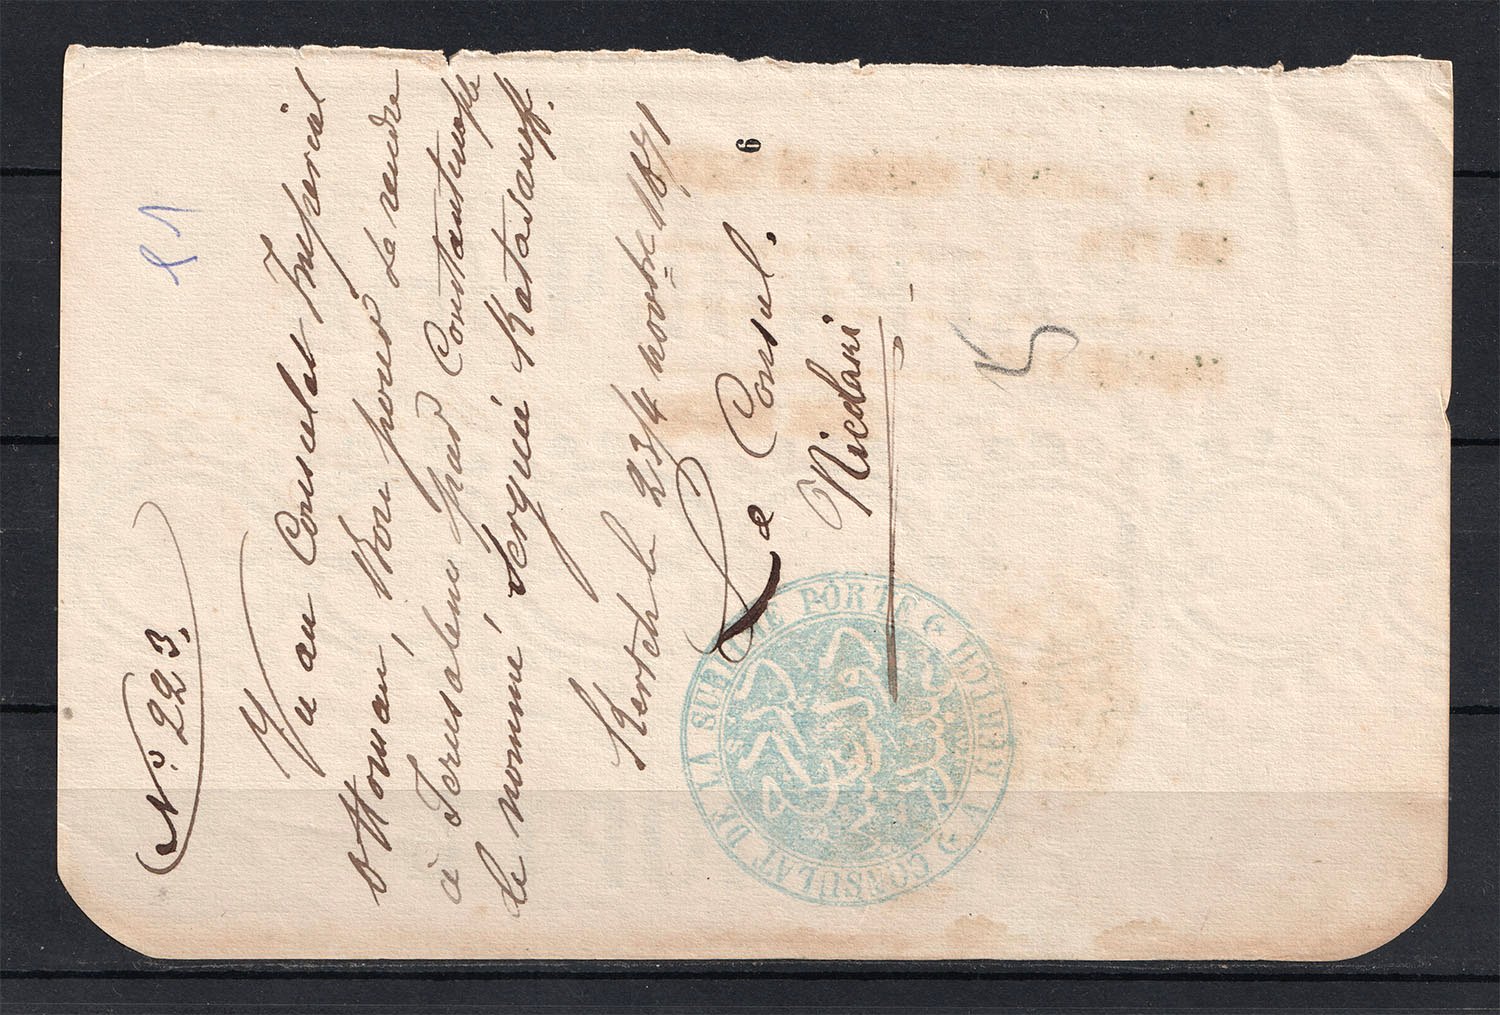 № 223.
21
Vu au Consulat Impérial
Ottoman, Bon pour se rendre
à Jerusalem par Constantinople
le nommé, Serguié
Kertch le 23/4 novbre 1871
6
Le Consul.
Nicdani
5
CONSULAT DE LA SUBLIME PORTE
A KERTCH